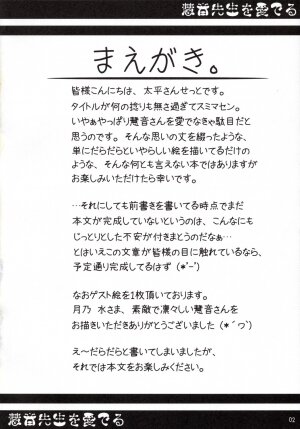 慧音先生を愛でる
まえがき。
皆様こんにちは、太平さんせっとです。
タイトルが何の捻りも無さ過ぎてスミマセン。
いやぁやっぱり慧音さんを愛でなきゃ駄目だと
思うのです。そんな思いの丈を綴ったような、
単にだらだらといやらしい絵を描いてるだけの
ような、そんな何とも言えない本ではありますが
お楽しみいただけたら幸いです。
…それにしても前書きを書いてる時点でまだ
本文が完成していないというのは、こんなにも
じっとりとした不安が付きまとうものだのなぁ…
とはいえこの文章が皆様の目に触れているなら、
予定通り完成してるはず (*'-')
なおゲスト絵を1枚頂いております。
月乃 水さま、素敵で凛々しい慧音さんを
お描きいただきありがとうございました (*´ワ`)
え～だらだらと書いてしまいましたが、
それでは本文をお楽しみください。
慧音先生を愛でる
02